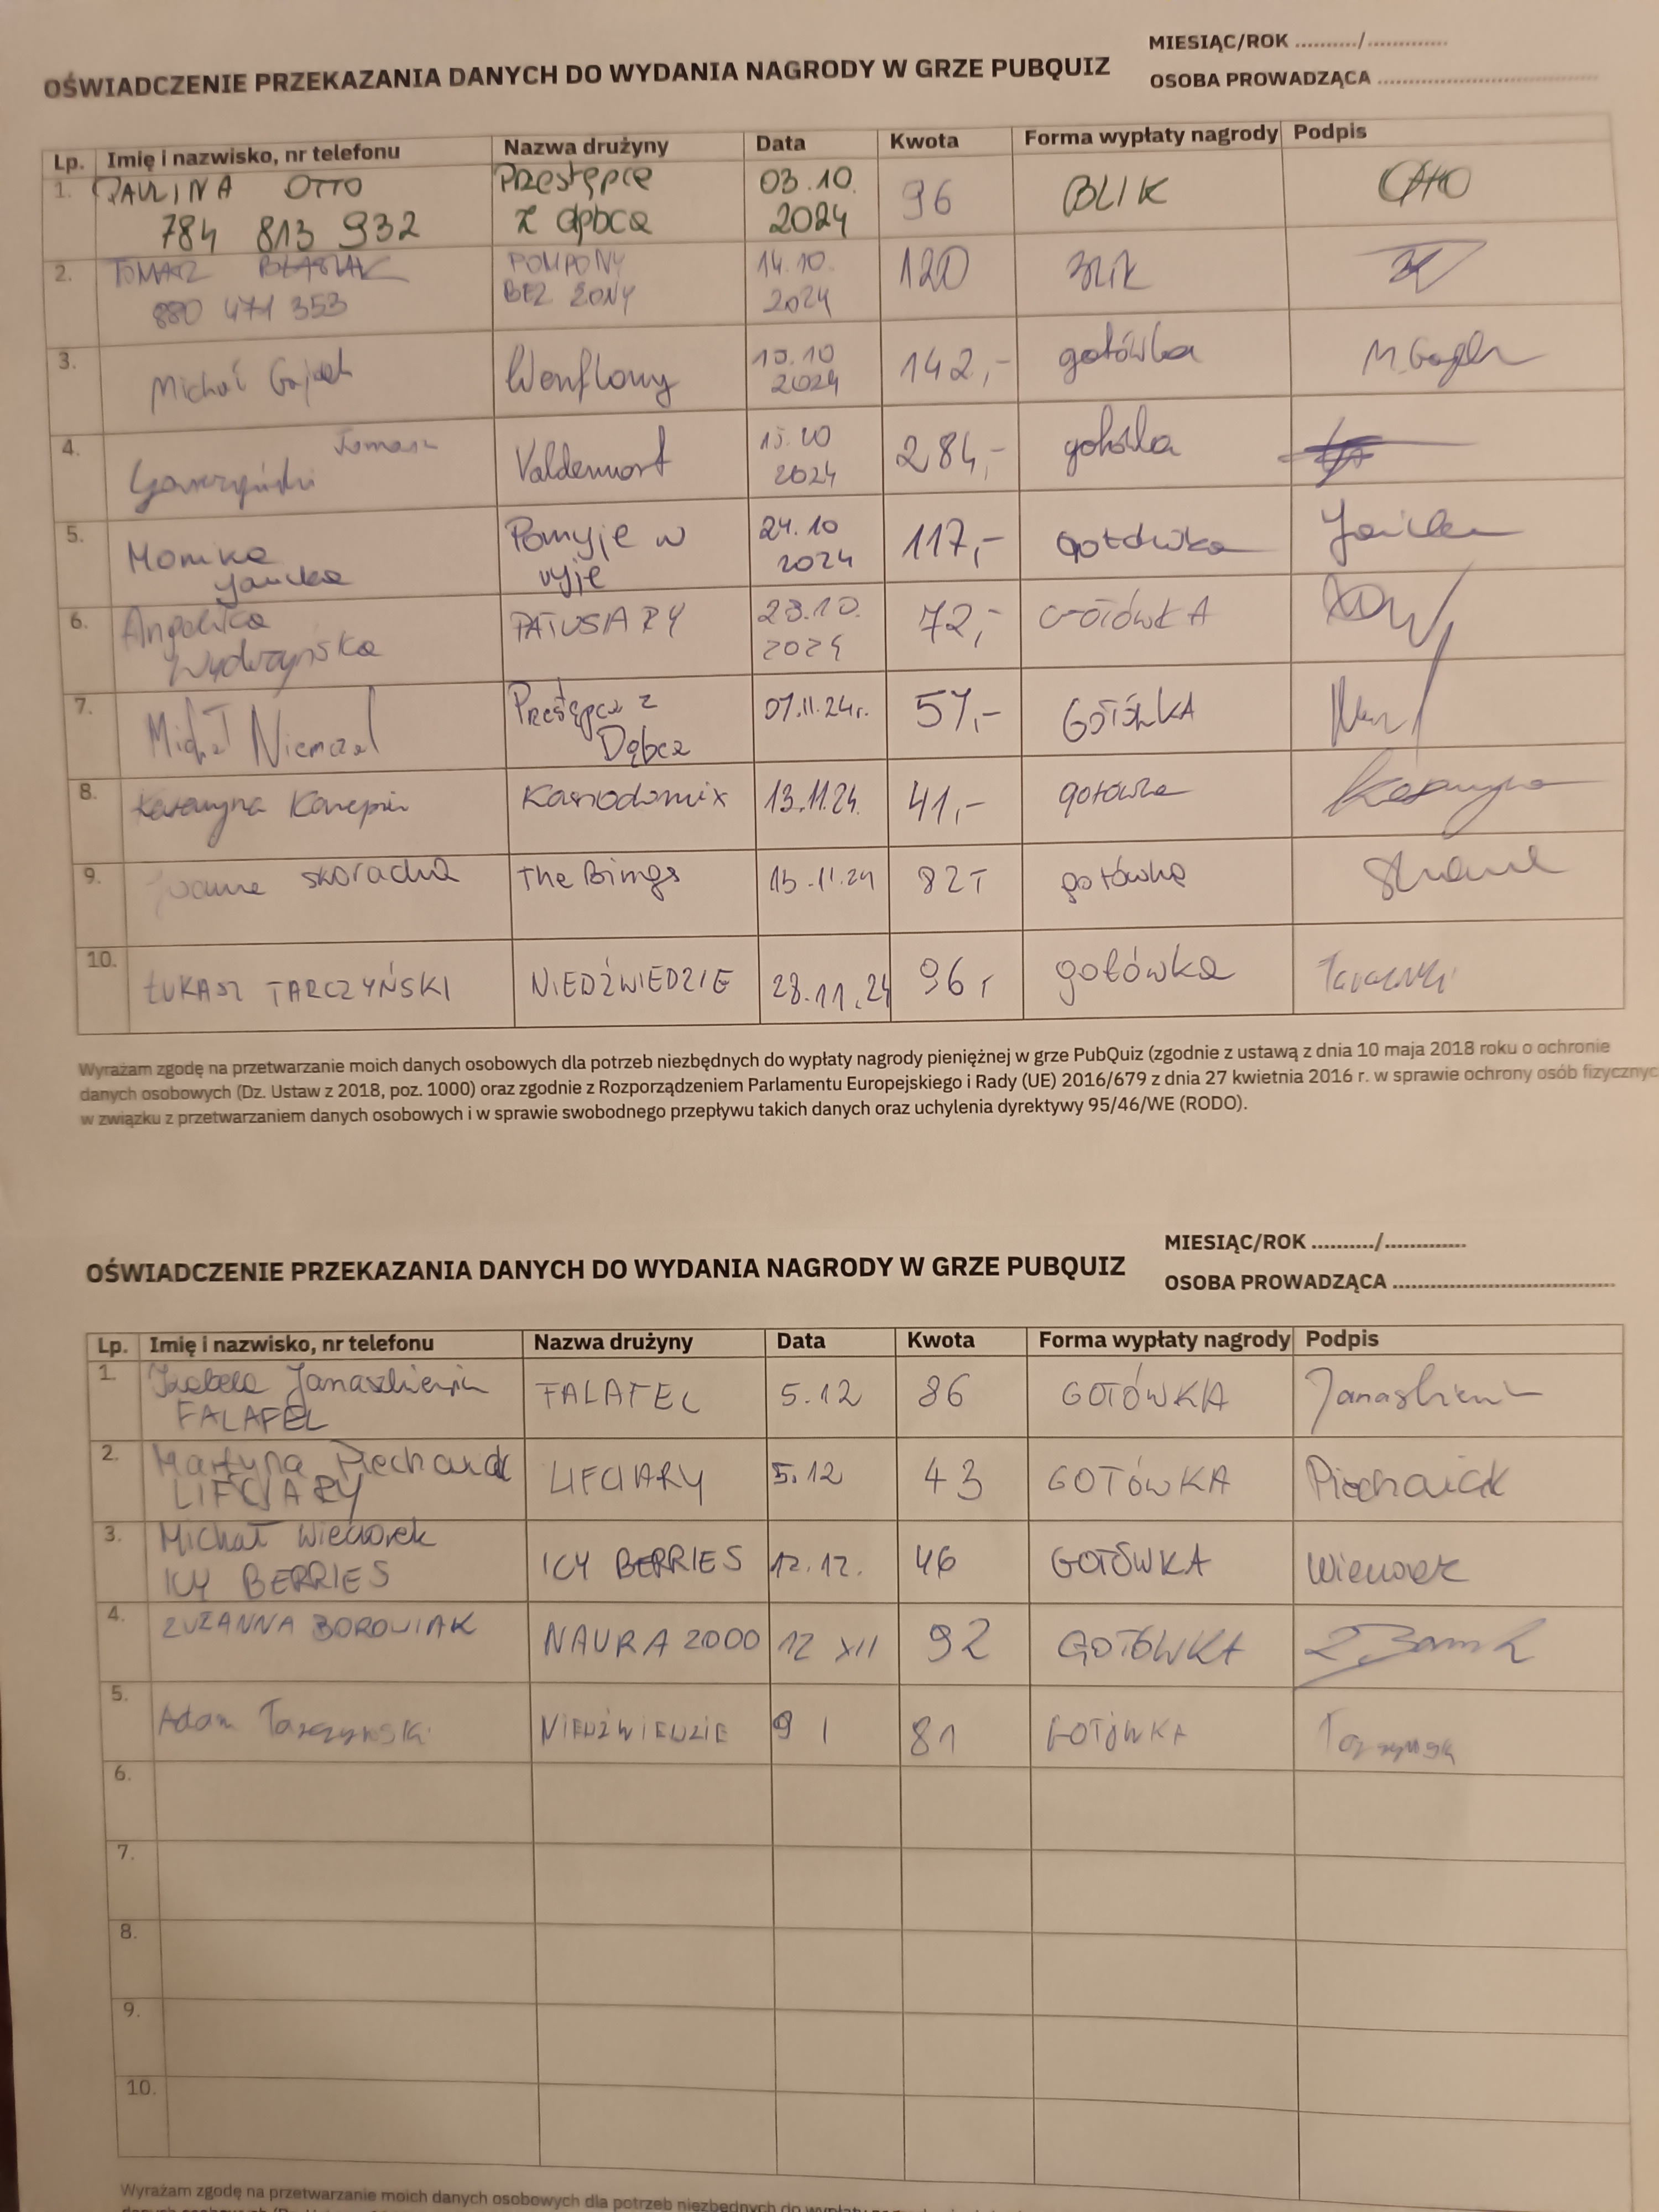 MIESIĄC/ROK ........../.............
OŚWIADCZENIE PRZEKAZANIA DANYCH DO WYDANIA NAGRODY W GRZE PUBQUIZ
OSOBA PROWADZĄCA ....................................
Lp. Imię i nazwisko, nr telefonu Nazwa drużyny Data Kwota Forma wypłaty nagrody Podpis
1. PAULINA OTTO Przestępcę 03.10. 96 BLIK OTTO
784 813 932 z dębca 2024
2. TOMASZ POMPONY 14.10. 120 BLIK
880 471 353 BEZ ŻONY 2024
3. Michał Gajdek Wenflowy 10.10 142,- gotówka
2024
4. Tomasz Valdemort 284,- gotówka
2024
5. Monika Pomyje w 24.10 117,- gotówka
Janicka ryje 2024
6. Angelika PATUSIARY 28.10. 72,- GOTÓWKA
Wydrzyńska 2024
7. Michał Niemczal Przestępcz z 07.11.24r. 57,- GOTÓWKA
Dębca
8. Katarzyna 13.11.24. 41,- gotówka
9. Skoracka The Bings 15.11.24 82 gotówkę
10. ŁUKASZ TARCZYŃSKI NIEDŹWIEDZIE 28.11.24 96 gotówka
Wyrażam zgodę na przetwarzanie moich danych osobowych dla potrzeb niezbędnych do wypłaty nagrody pieniężnej w grze PubQuiz (zgodnie z ustawą z dnia 10 maja 2018 roku o ochronie
danych osobowych (Dz. Ustaw z 2018, poz. 1000) oraz zgodnie z Rozporządzeniem Parlamentu Europejskiego i Rady (UE) 2016/679 z dnia 27 kwietnia 2016 r. w sprawie ochrony osób fizycznyc
w związku z przetwarzaniem danych osobowych i w sprawie swobodnego przepływu takich danych oraz uchylenia dyrektywy 95/46/WE (RODO).
MIESIĄC/ROK ........../.............
OŚWIADCZENIE PRZEKAZANIA DANYCH DO WYDANIA NAGRODY W GRZE PUBQUIZ
OSOBA PROWADZĄCA ....................................
Lp. Imię i nazwisko, nr telefonu Nazwa drużyny Data Kwota Forma wypłaty nagrody Podpis
1. Izabela FALAFEL 5.12 86 GOTÓWKA
FALAFEL
2. Martyna Piechaczek LIFCIARY 5.12 43 GOTÓWKA
LIFCIARY
3. Michał Wieczorek ICY BERRIES 12.12. 46 GOTÓWKA Wieczorek
ICY BERRIES
4. ZUZANNA BOROWIAK NAURA 2000 12 XII 92 GOTÓWKA
5. Adam Tarczyński NIEDŹWIEDZIE 9 I 81 GOTÓWKA
6.
7.
8.
9.
10.
Wyrażam zgodę na przetwarzanie moich danych osobowych dla potrzeb niezbędnych do